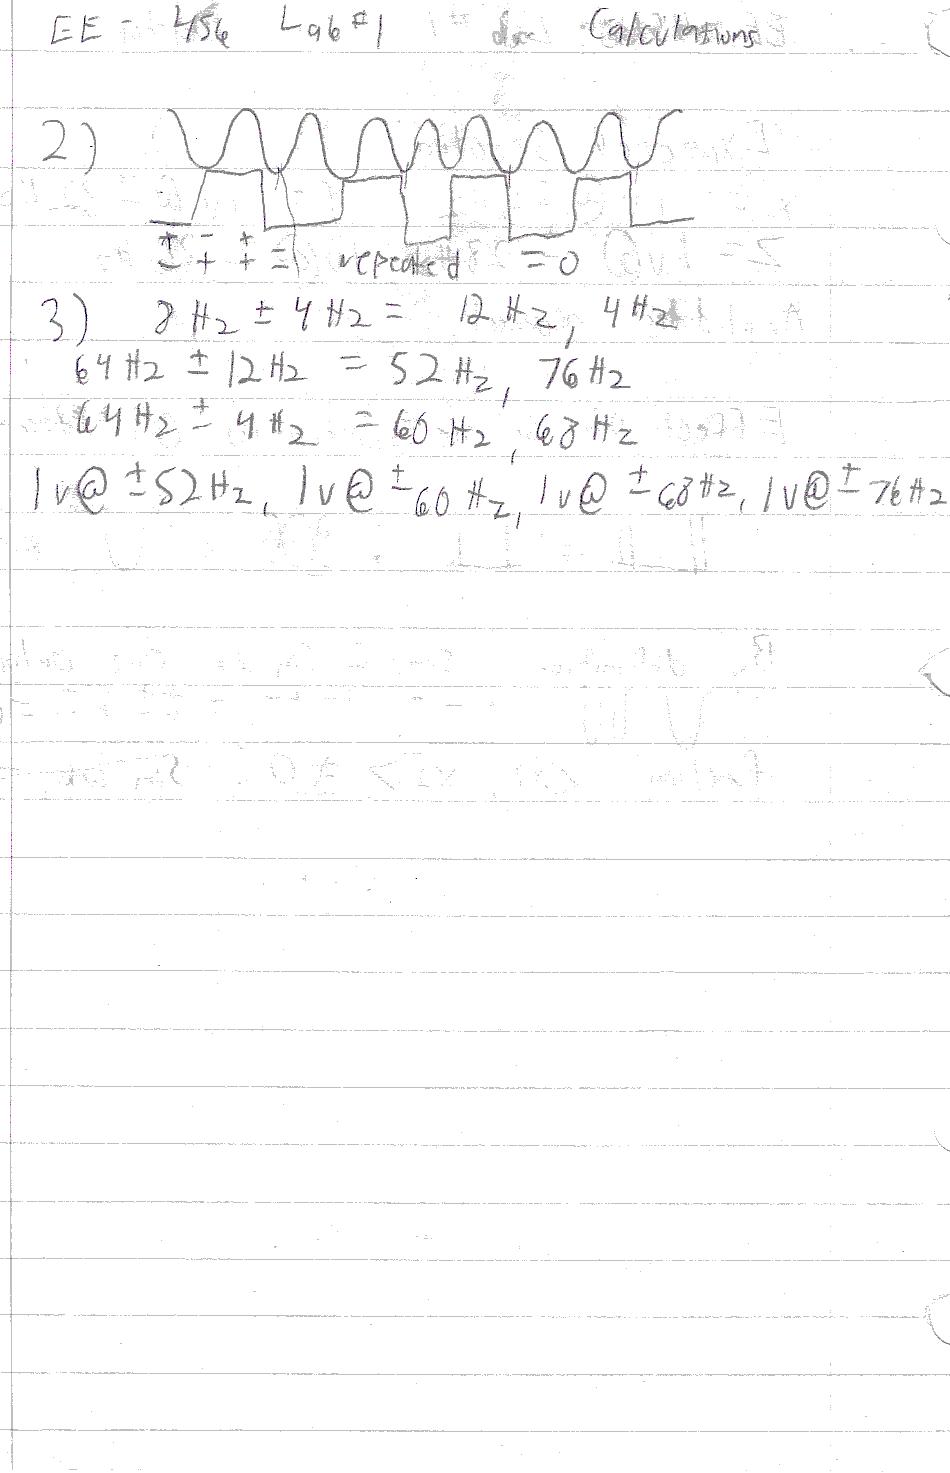 EE - 456 Lab #1 Calculations
2)
± - + =
- + + = repeated = 0
3) 8 Hz ± 4 Hz = 12 Hz, 4 Hz
64 Hz ± 12 Hz = 52 Hz, 76 Hz
64 Hz ± 4 Hz = 60 Hz, 68 Hz
1v@ ±52 Hz, 1v@ ±60 Hz, 1v@ ±68 Hz, 1v@ ±76 Hz